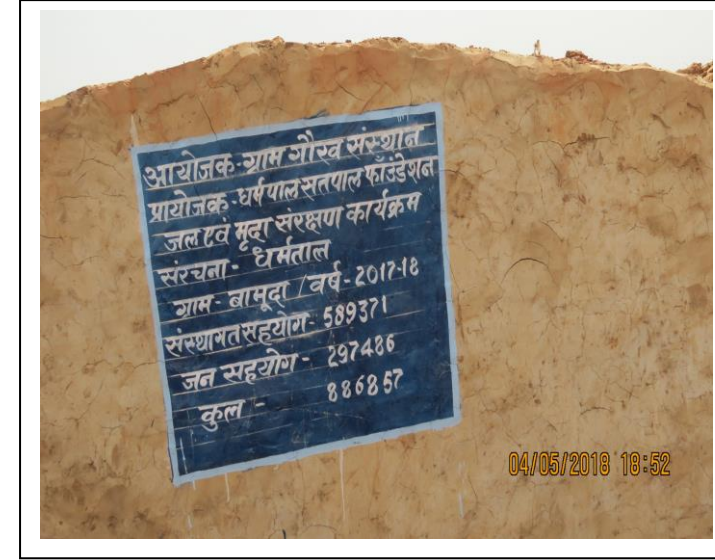 आयोजक-ग्राम गौरव संस्थान
प्रायोजक-धर्मपाल सतपाल फाँउंडेशन
जल एवं मृदा संरक्षण कार्यक्रम
संरचना- धर्मताल
ग्राम- बामूदा / वर्ष-2017-18
संस्थागत सहयोग- 589371
जन सहयोग- 297486
कुल - 886857
04/05/2018 18:52